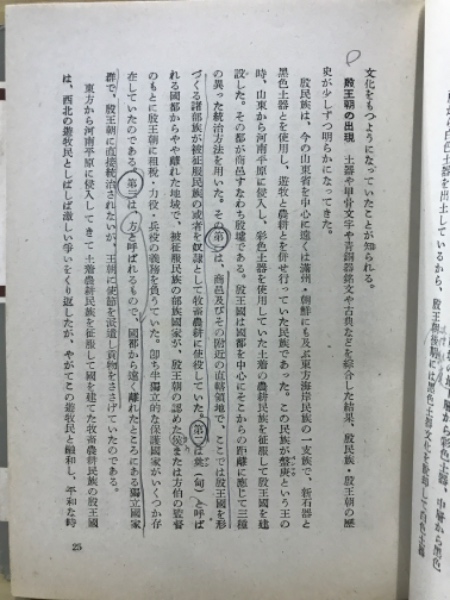 文化をもつようになっていたことが知られる。
殷王朝の出現　土器や甲骨文字や青銅器銘文や古典などを綜合した結果、殷民族・殷王朝の歴
史が少しずつ明らかになってきた。
殷民族は、今の山東省を中心に遠くは満州・朝鮮にも及ぶ東方海岸民族の一支族で、新石器と
黒色土器とを使用し、遊牧と農耕とを併せ行っていた民族であった。この民族が盤庚という王の
時、山東から河南平原に侵入し、彩色土器を使用していた土着の農耕民族を征服して殷王國を建
設した。その都が商邑すなわち殷墟である。殷王國は國都を中心にそこからの距離に應じて三種
の異った統治方法を用いた。その第一は、商邑及びその附近の直轄領地で、ここでは殷王國を形
づくる諸部族が被征服民族の或者を奴隷として牧畜農耕に使役していた。第二は
(甸)と呼ば
れる國都からやや離れた地域で、被征服民族の部族國家が、殷王朝の認めた侯または方伯の監督
のもとに殷王朝に租税・力役・兵役の義務を負うていた。卽ち半獨立的な保護國家がいくつか存
在していたのである。第三は、方と呼ばれるもので、國都から遠く離れたところにある獨立國家
群で、殷王朝に直接統治されないが、王朝に使節を派遣し貢物をささげていたのである。
東方から河南平原に侵入してきて土着農耕民族を征服して國を建てた牧畜農耕民族の殷王國
は、西北の遊牧民としばしば激しい爭いをくり返したが、やがてこの遊牧民と融和し、平和な時
25